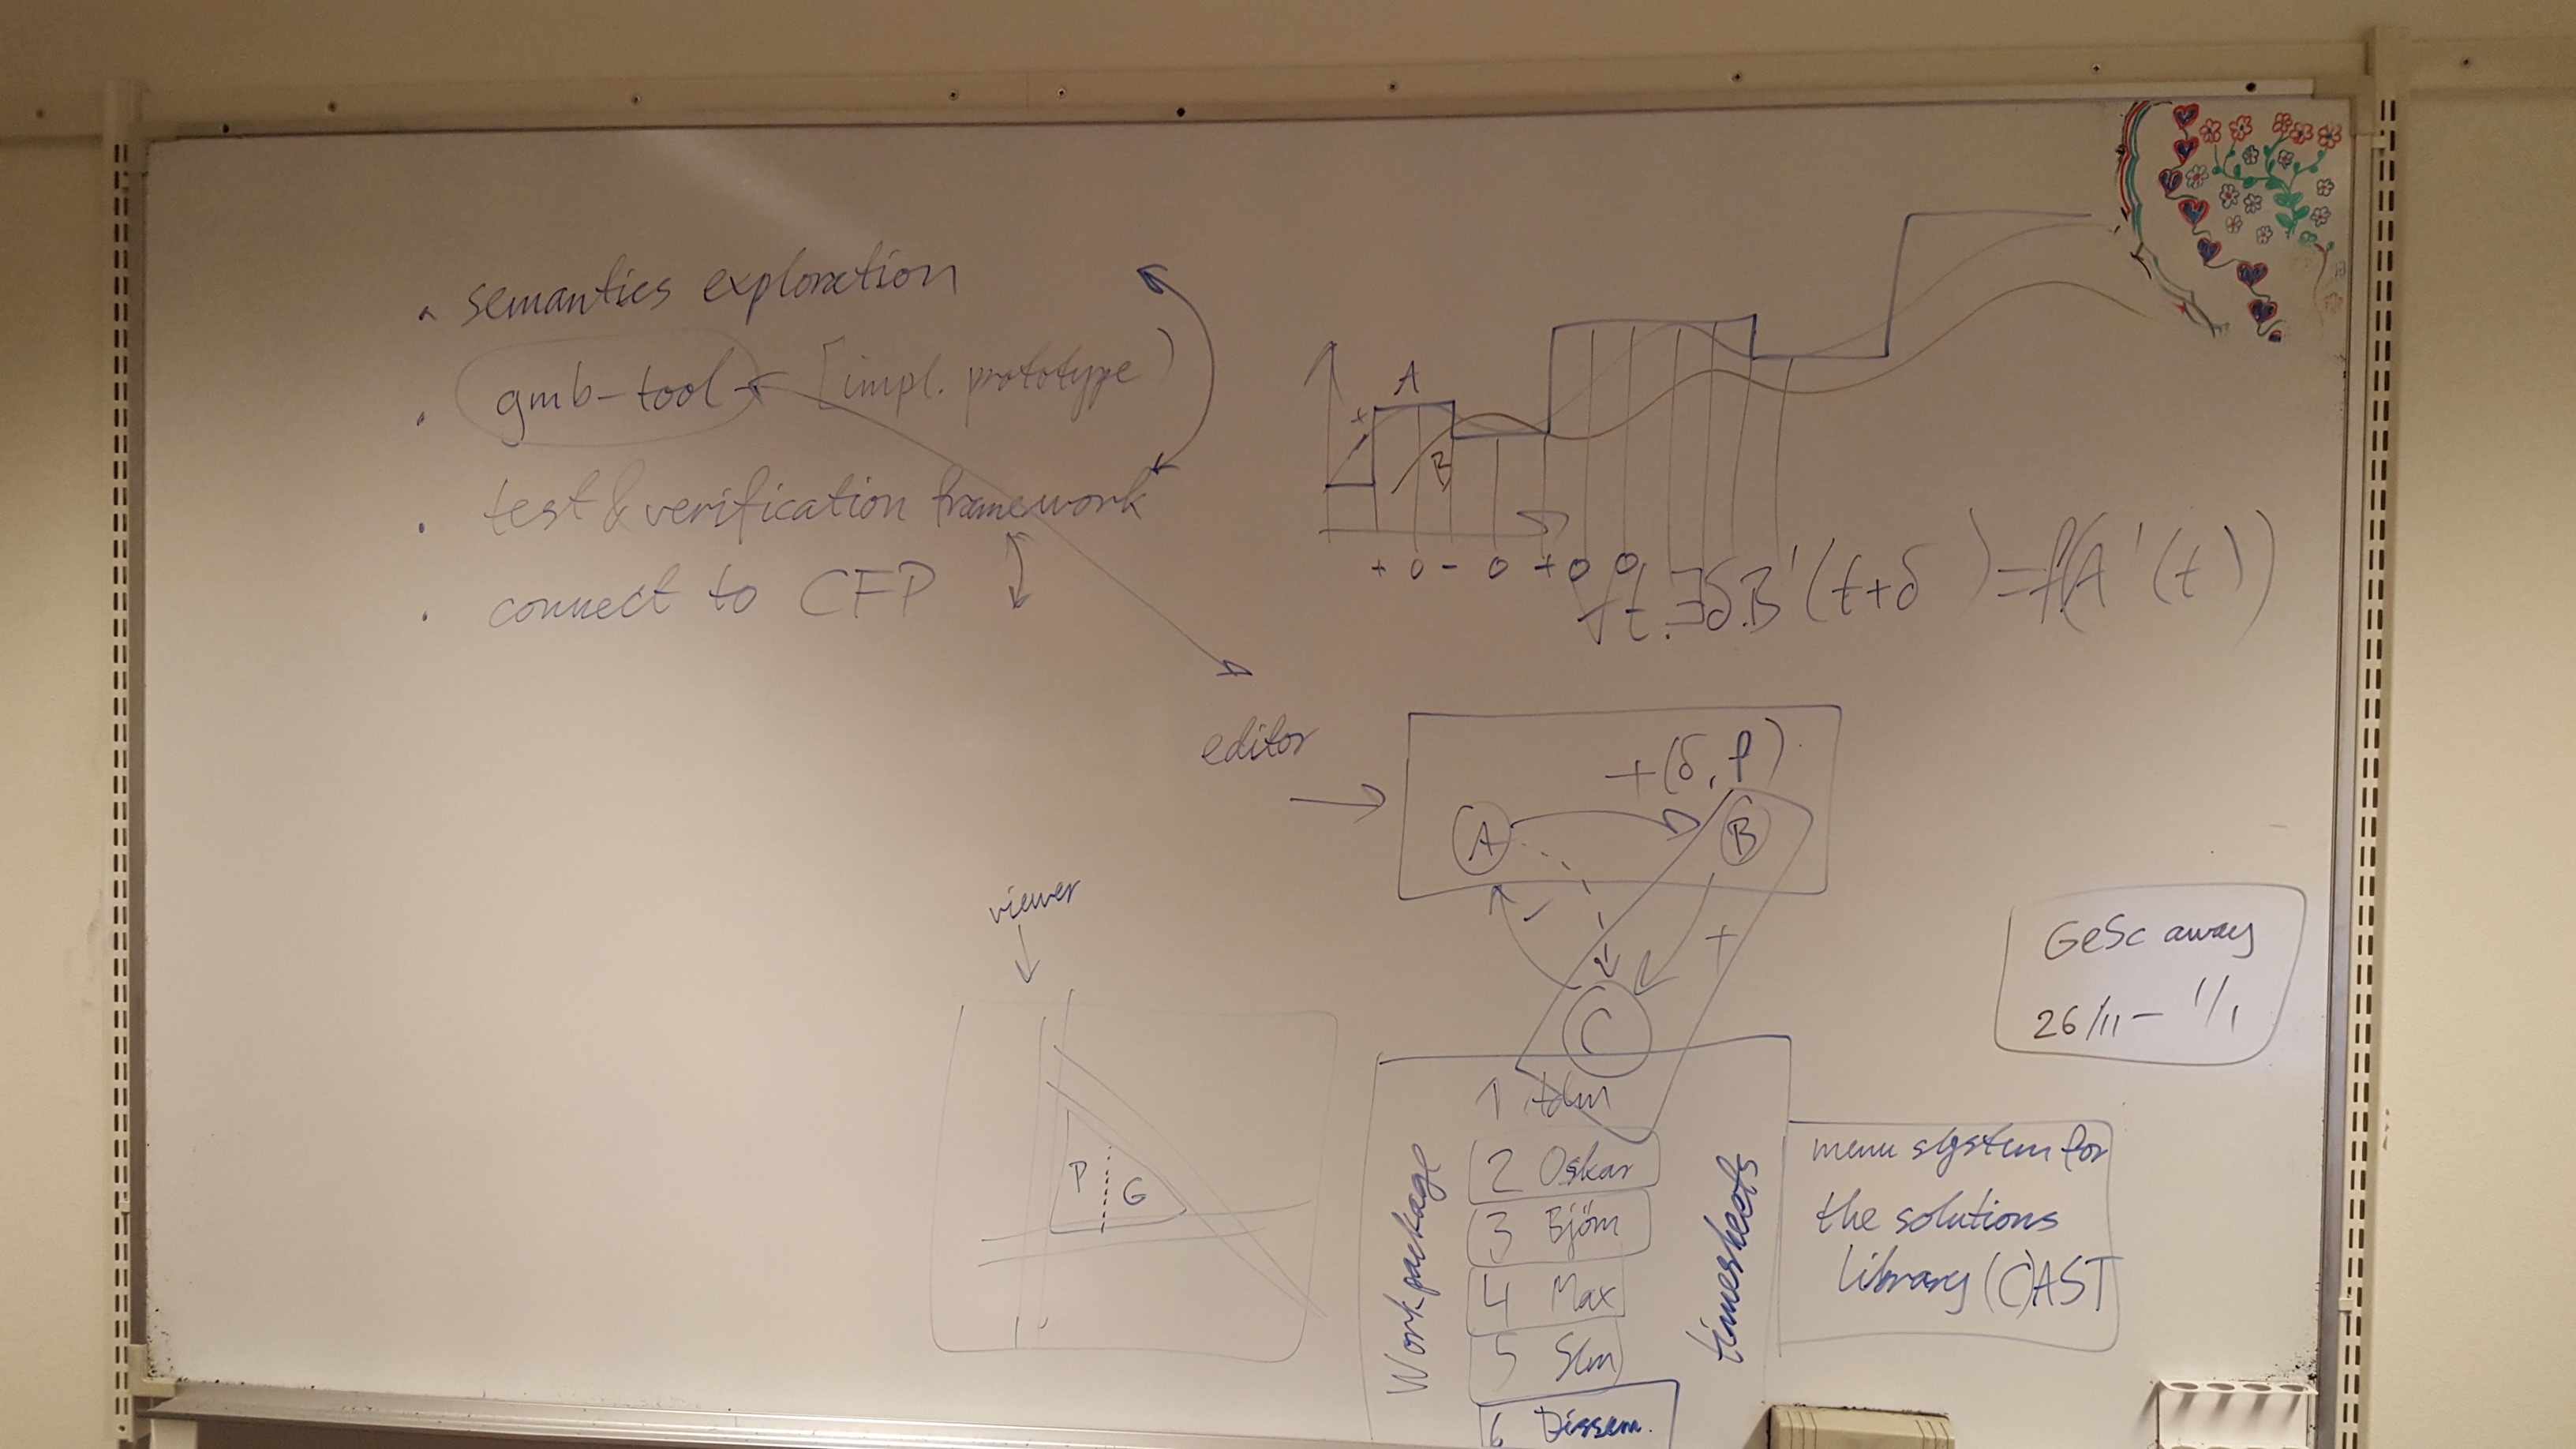 semantics exploration
gmb-tool [impl. prototype)
test & verification framework
connect to CFP
A
B
+ 0 - 0 + 0 0
∀t.∃δ.B'(t+δ)=f(A'(t))
editor
+(δ, f)
A
B
-
+
C
viewer
P
G
GeSc away
26/11 - 1/1
Workpackage
1 Adm
2 Oskar
3 Björn
4 Max
5
6 Dissem.
timesheets
menu system for
the solutions
library (C)AST